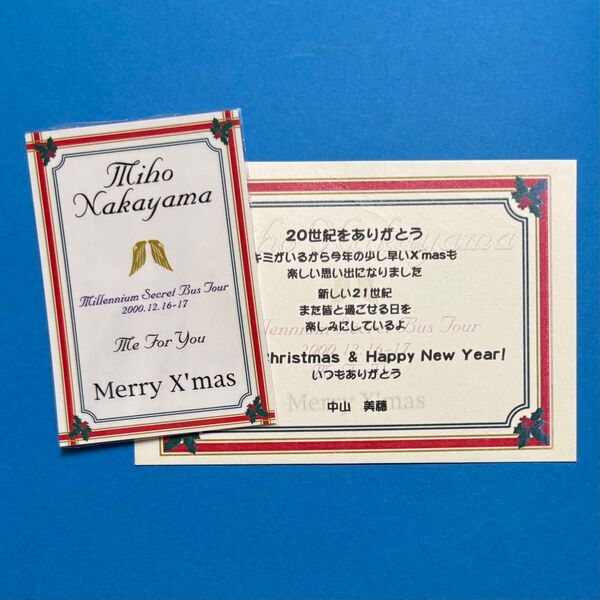 Miho
Nakayama
Millennium Secret Bus Tour
2000.12.16-17
Me For You
Merry X'mas
Miho Nakayama
20世紀をありがとう
キミがいるから今年の少し早いX'masも
楽しい思い出になりました
新しい21世紀
また皆と過ごせる日を
楽しみにしているよ
Christmas & Happy New Year!
いつもありがとう
中山 美穂
Millennium Secret Bus Tour
2000.12.16-17
Merry X'mas